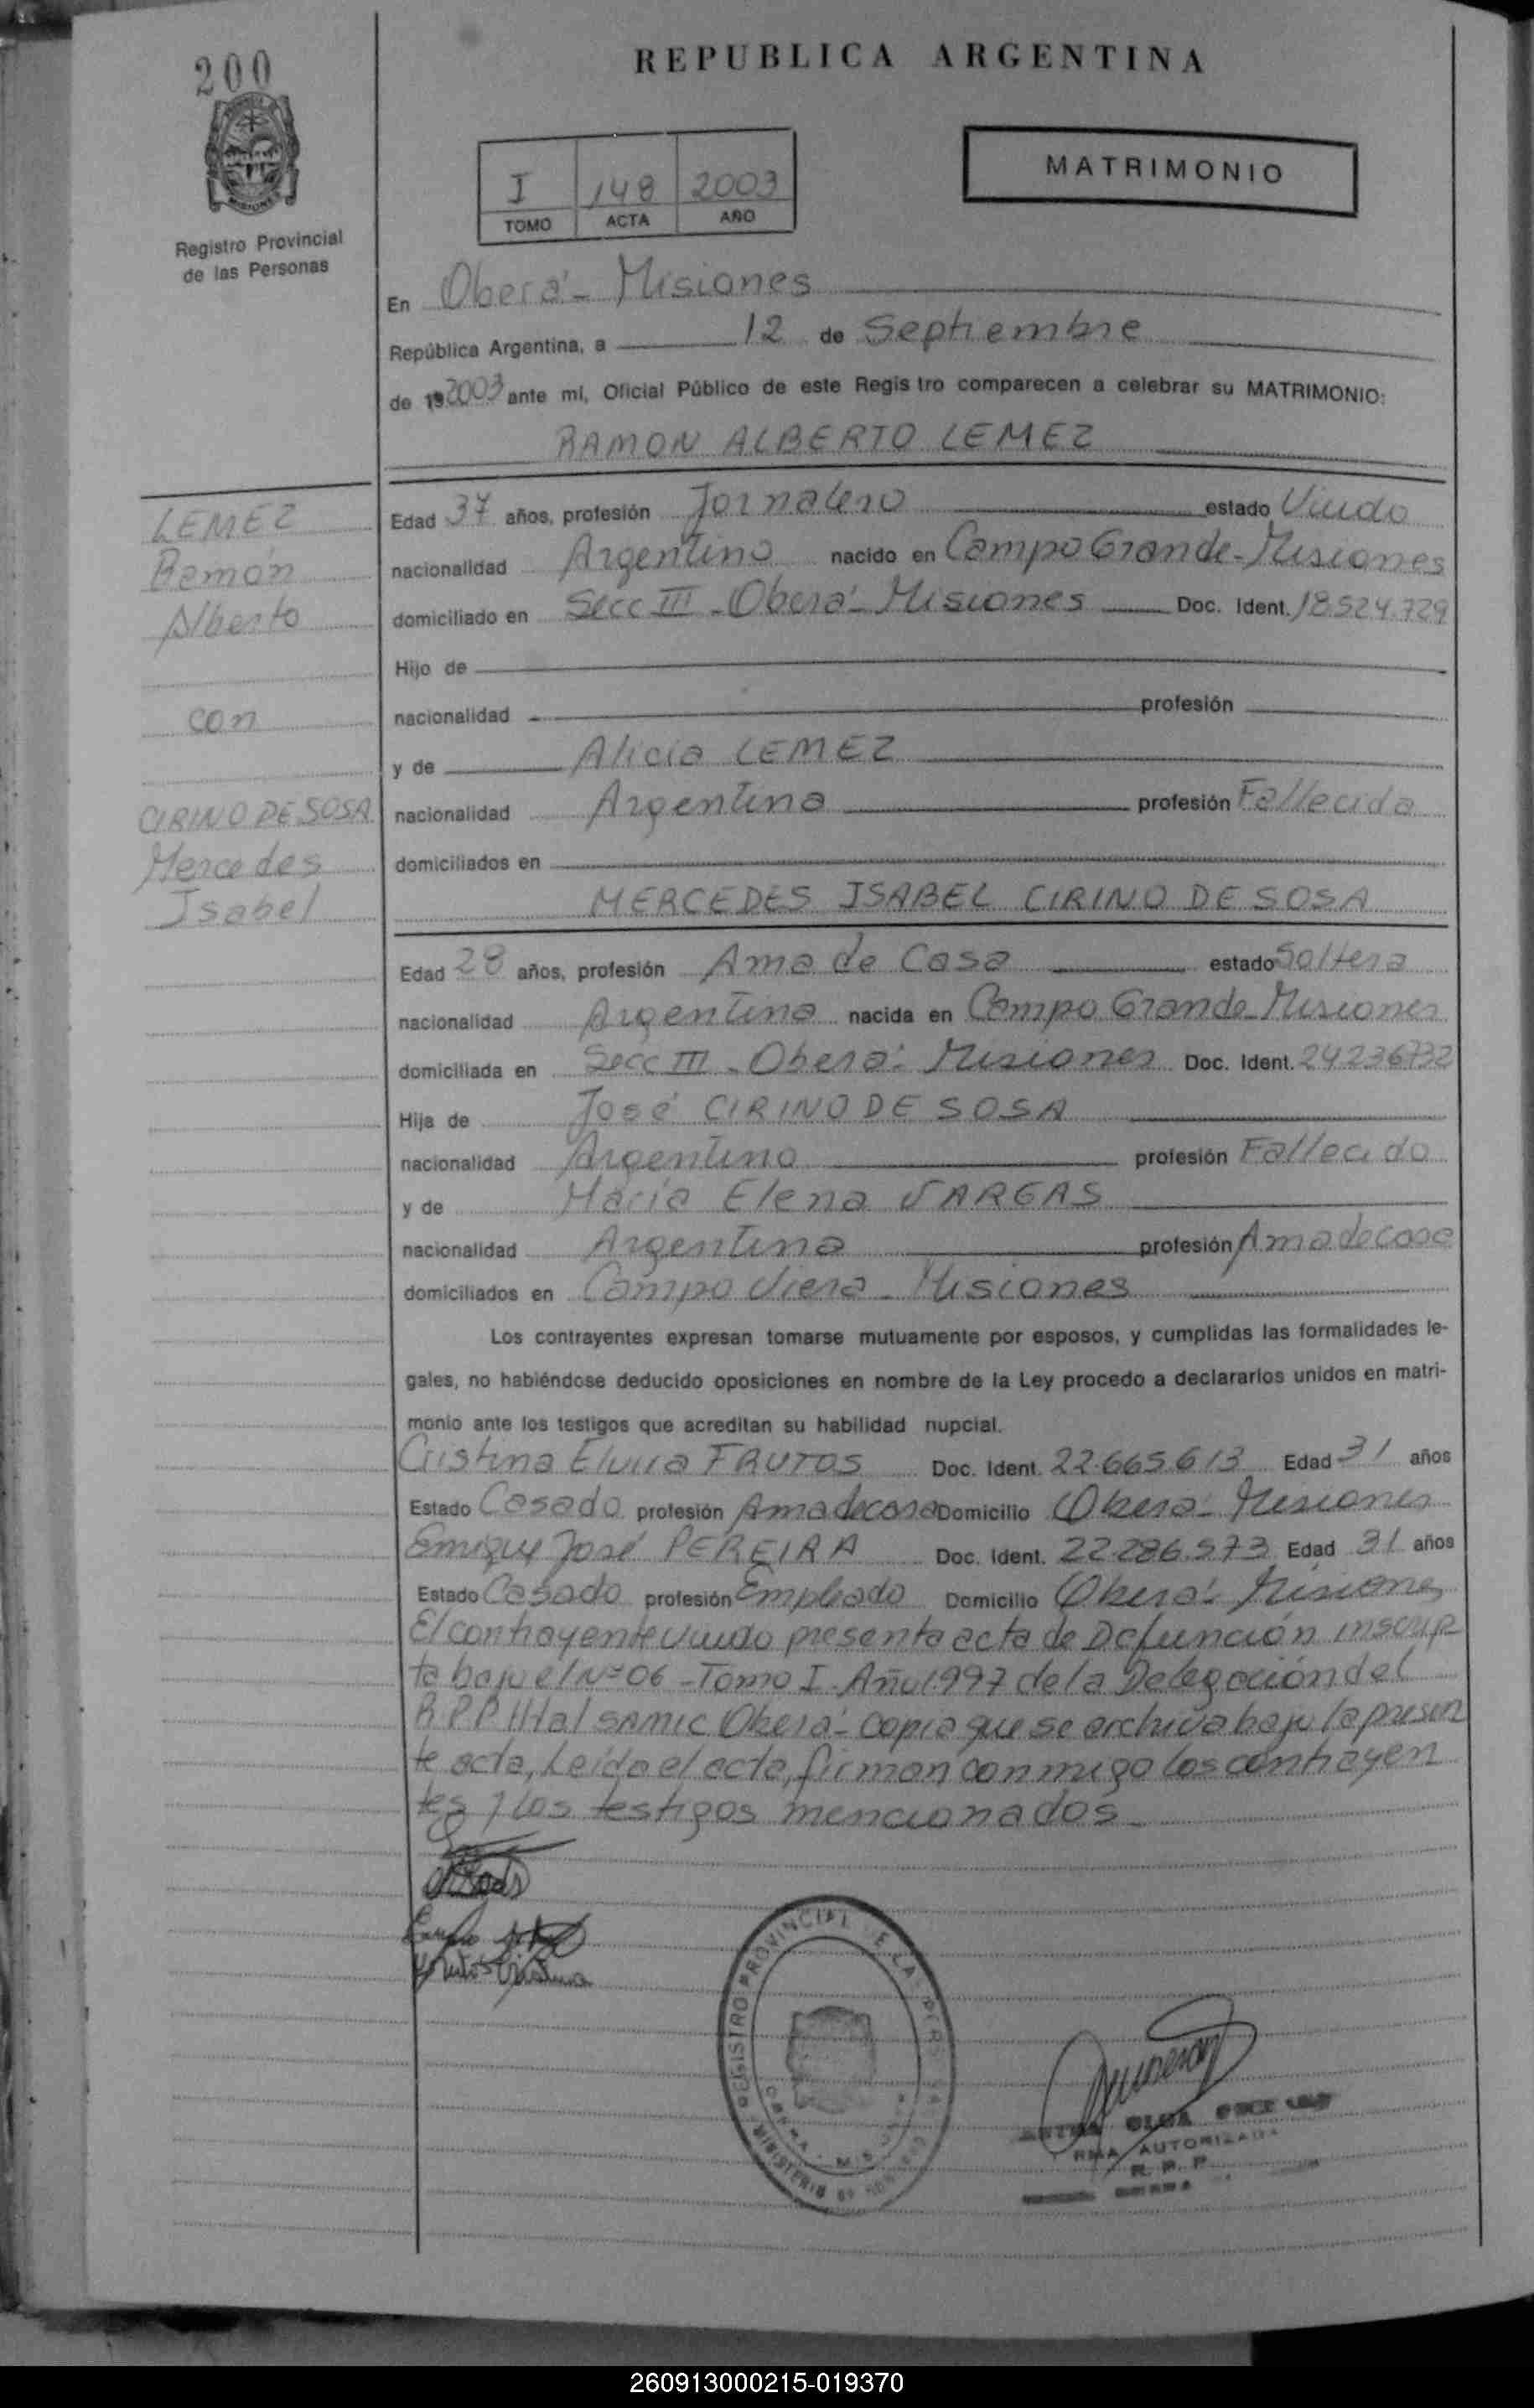 200
REPUBLICA ARGENTINA
I 148 2003
TOMO ACTA AÑO
MATRIMONIO
Registro Provincial
de las Personas
En Oberá - Misiones
República Argentina, a 12 de Septiembre
de 19 2003 ante mi, Oficial Público de este Registro comparecen a celebrar su MATRIMONIO:
RAMON ALBERTO LEMEZ
LEMEZ
Ramón
Alberto
con
CIRINO DE SOSA
Mercedes
Isabel
Edad 37 años, profesión Jornalero estado Viudo
nacionalidad Argentino nacido en Campo Grande - Misiones
domiciliado en Secc III - Oberá - Misiones Doc. Ident. 18.524.729
Hijo de
nacionalidad profesión
y de Alicia LEMEZ
nacionalidad Argentina profesión Fallecida
domiciliados en
MERCEDES ISABEL CIRINO DE SOSA
Edad 28 años, profesión Ama de Casa estado Soltera
nacionalidad Argentina nacida en Campo Grande - Misiones
domiciliada en Secc III - Oberá - Misiones Doc. Ident. 24236732
Hija de José CIRINO DE SOSA
nacionalidad Argentino profesión Fallecido
y de María Elena VARGAS
nacionalidad Argentina profesión Ama de casa
domiciliados en Campo Viera - Misiones
Los contrayentes expresan tomarse mutuamente por esposos, y cumplidas las formalidades le-
gales, no habiéndose deducido oposiciones en nombre de la Ley procedo a declararlos unidos en matri-
monio ante los testigos que acreditan su habilidad nupcial.
Cristina Elvira FRUTOS Doc. Ident. 22.665.613 Edad 31 años
Estado Casado profesión Ama de casa Domicilio Oberá - Misiones
Enrique José PEREIRA Doc. Ident. 22.286.573 Edad 31 años
Estado Casado profesión Empleado Domicilio Oberá - Misiones
El contrayente viudo presenta acta de Defunción inscrip
ta bajo el Nº 06 - Tomo I - Año 1997 de la Delegación del
R.P.P. Htal SAMIC Oberá - copia que se archiva bajo la presen
te acta, Leída el acta, firman conmigo los contrayen
tes y los testigos mencionados -
Frutos Cristina
REGISTRO PROVINCIAL DE LAS
OLGA
AUTORIZADA
R. P. P.
260913000215-019370